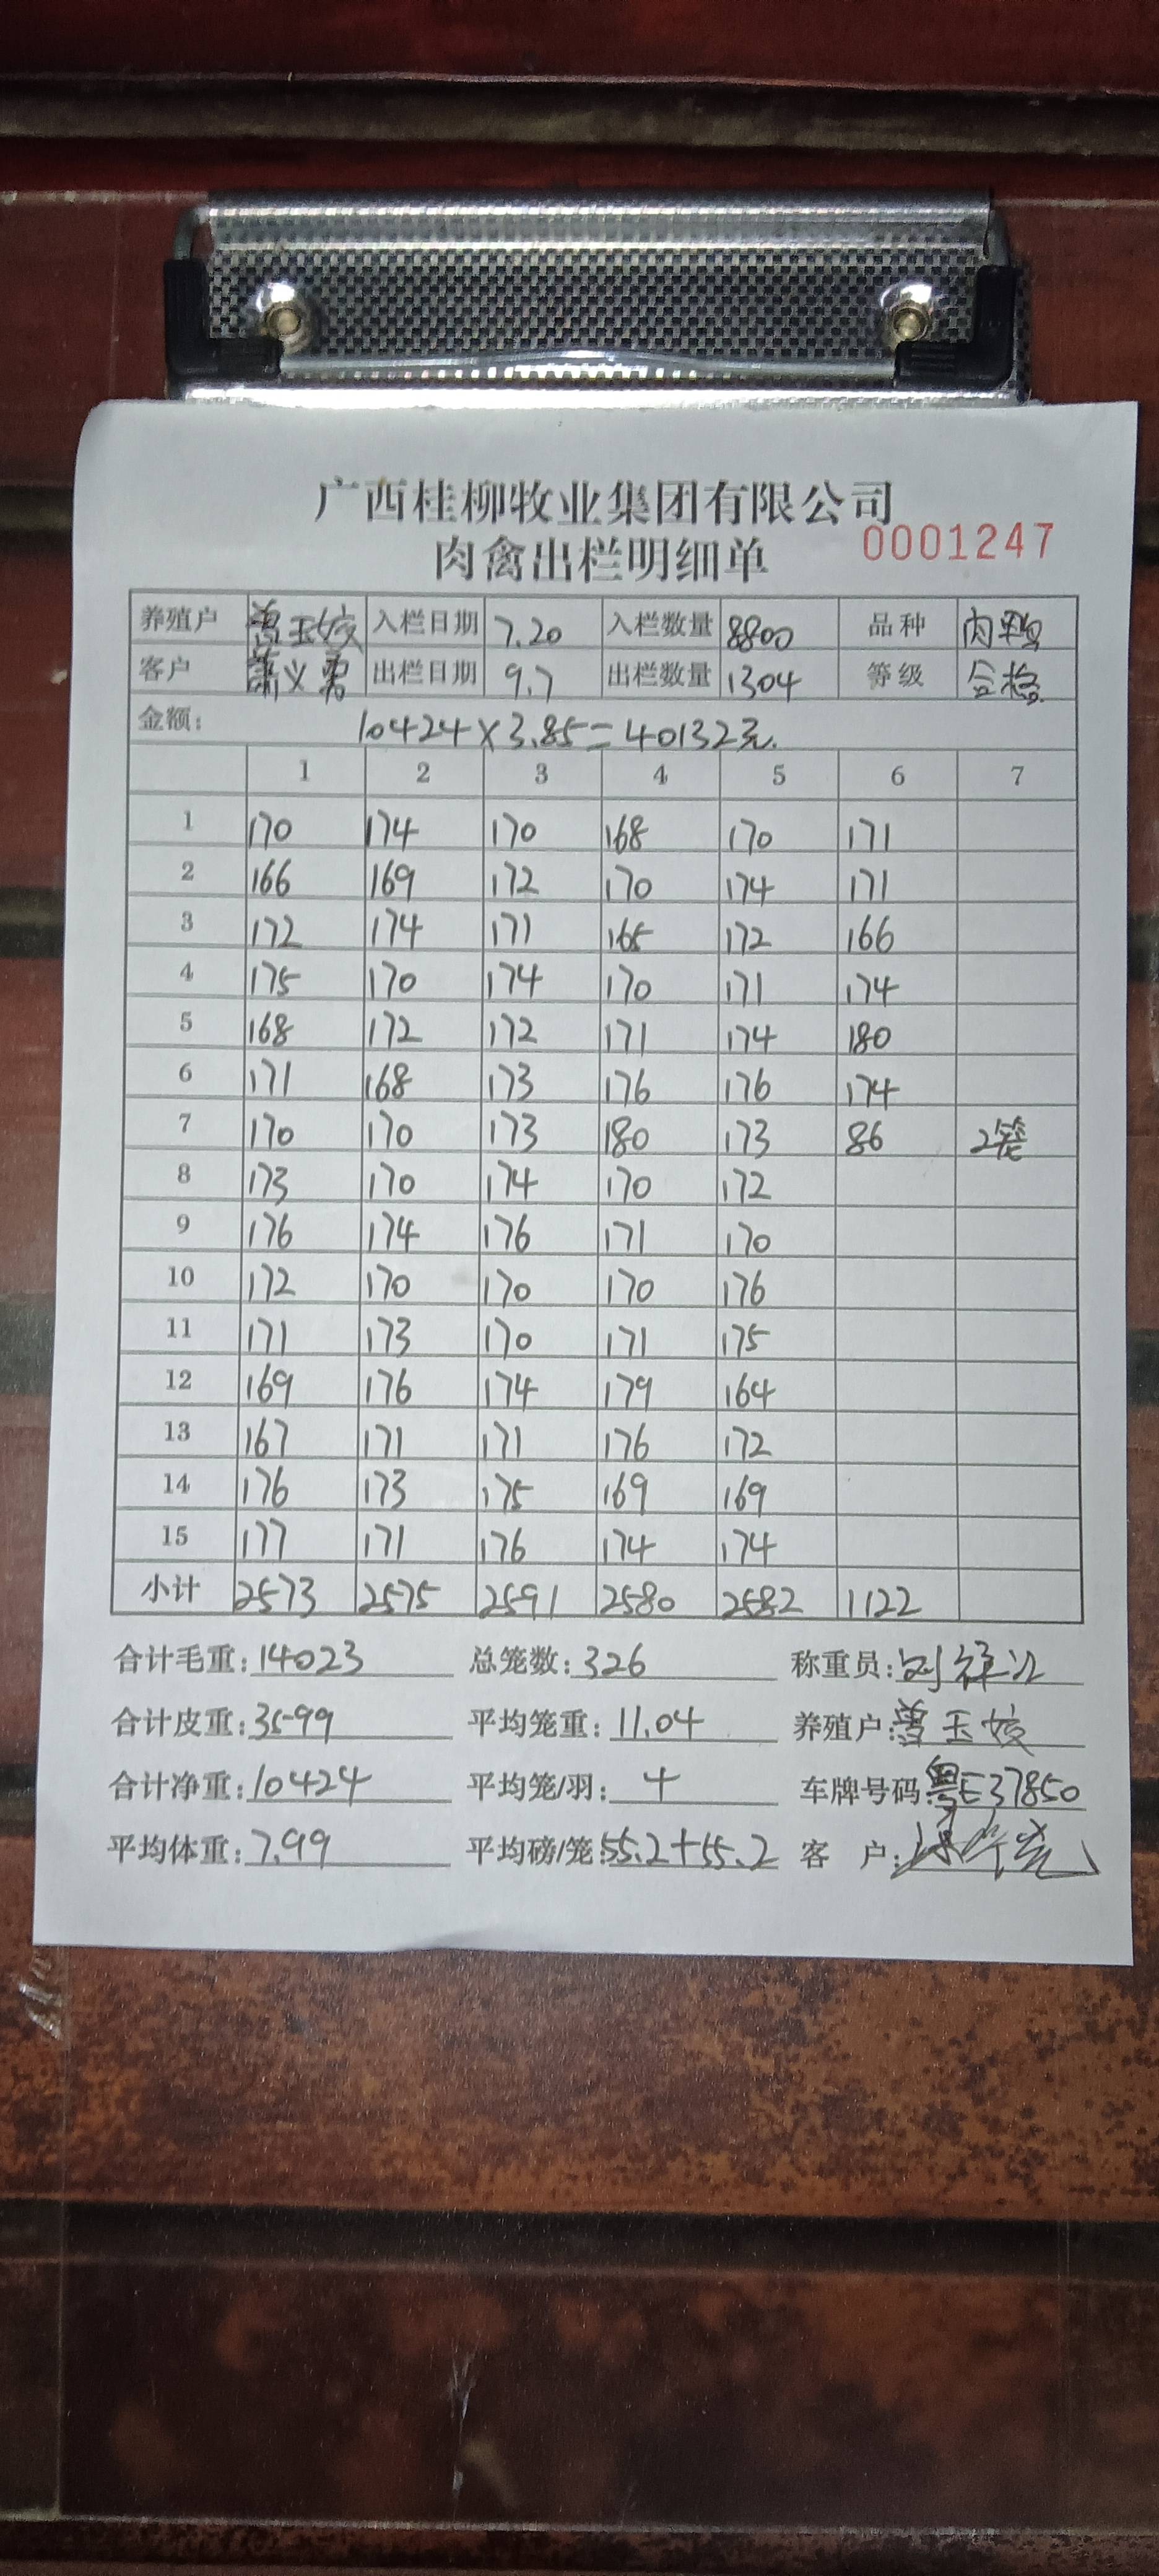 广西桂柳牧业集团有限公司
肉禽出栏明细单 0001247
养殖户 曾玉姣 入栏日期 7.20 入栏数量 8800 品种 肉鸭
客户 萧义勇 出栏日期 9.7 出栏数量 1304 等级 合格
金额: 10424×3.85=40132元.
1 2 3 4 5 6 7
1 170 174 170 168 170 171
2 166 169 172 170 174 171
3 172 174 171 165 172 166
4 175 170 174 170 171 174
5 168 172 172 171 174 180
6 171 168 173 176 176 174
7 170 170 173 180 173 86 2笼
8 173 170 174 170 172
9 176 174 176 171 170
10 172 170 170 170 176
11 171 173 170 171 175
12 169 176 174 179 164
13 167 171 171 176 172
14 176 173 175 169 169
15 177 171 176 174 174
小计 2573 2575 2591 2580 2582 1122
合计毛重: 14023 总笼数: 326 称重员:
合计皮重: 3599 平均笼重: 11.04 养殖户: 曾玉姣
合计净重: 10424 平均笼/羽: 4 车牌号码: 粤E37850
平均体重: 7.99 平均磅/笼: 55.2+55.2 客户: